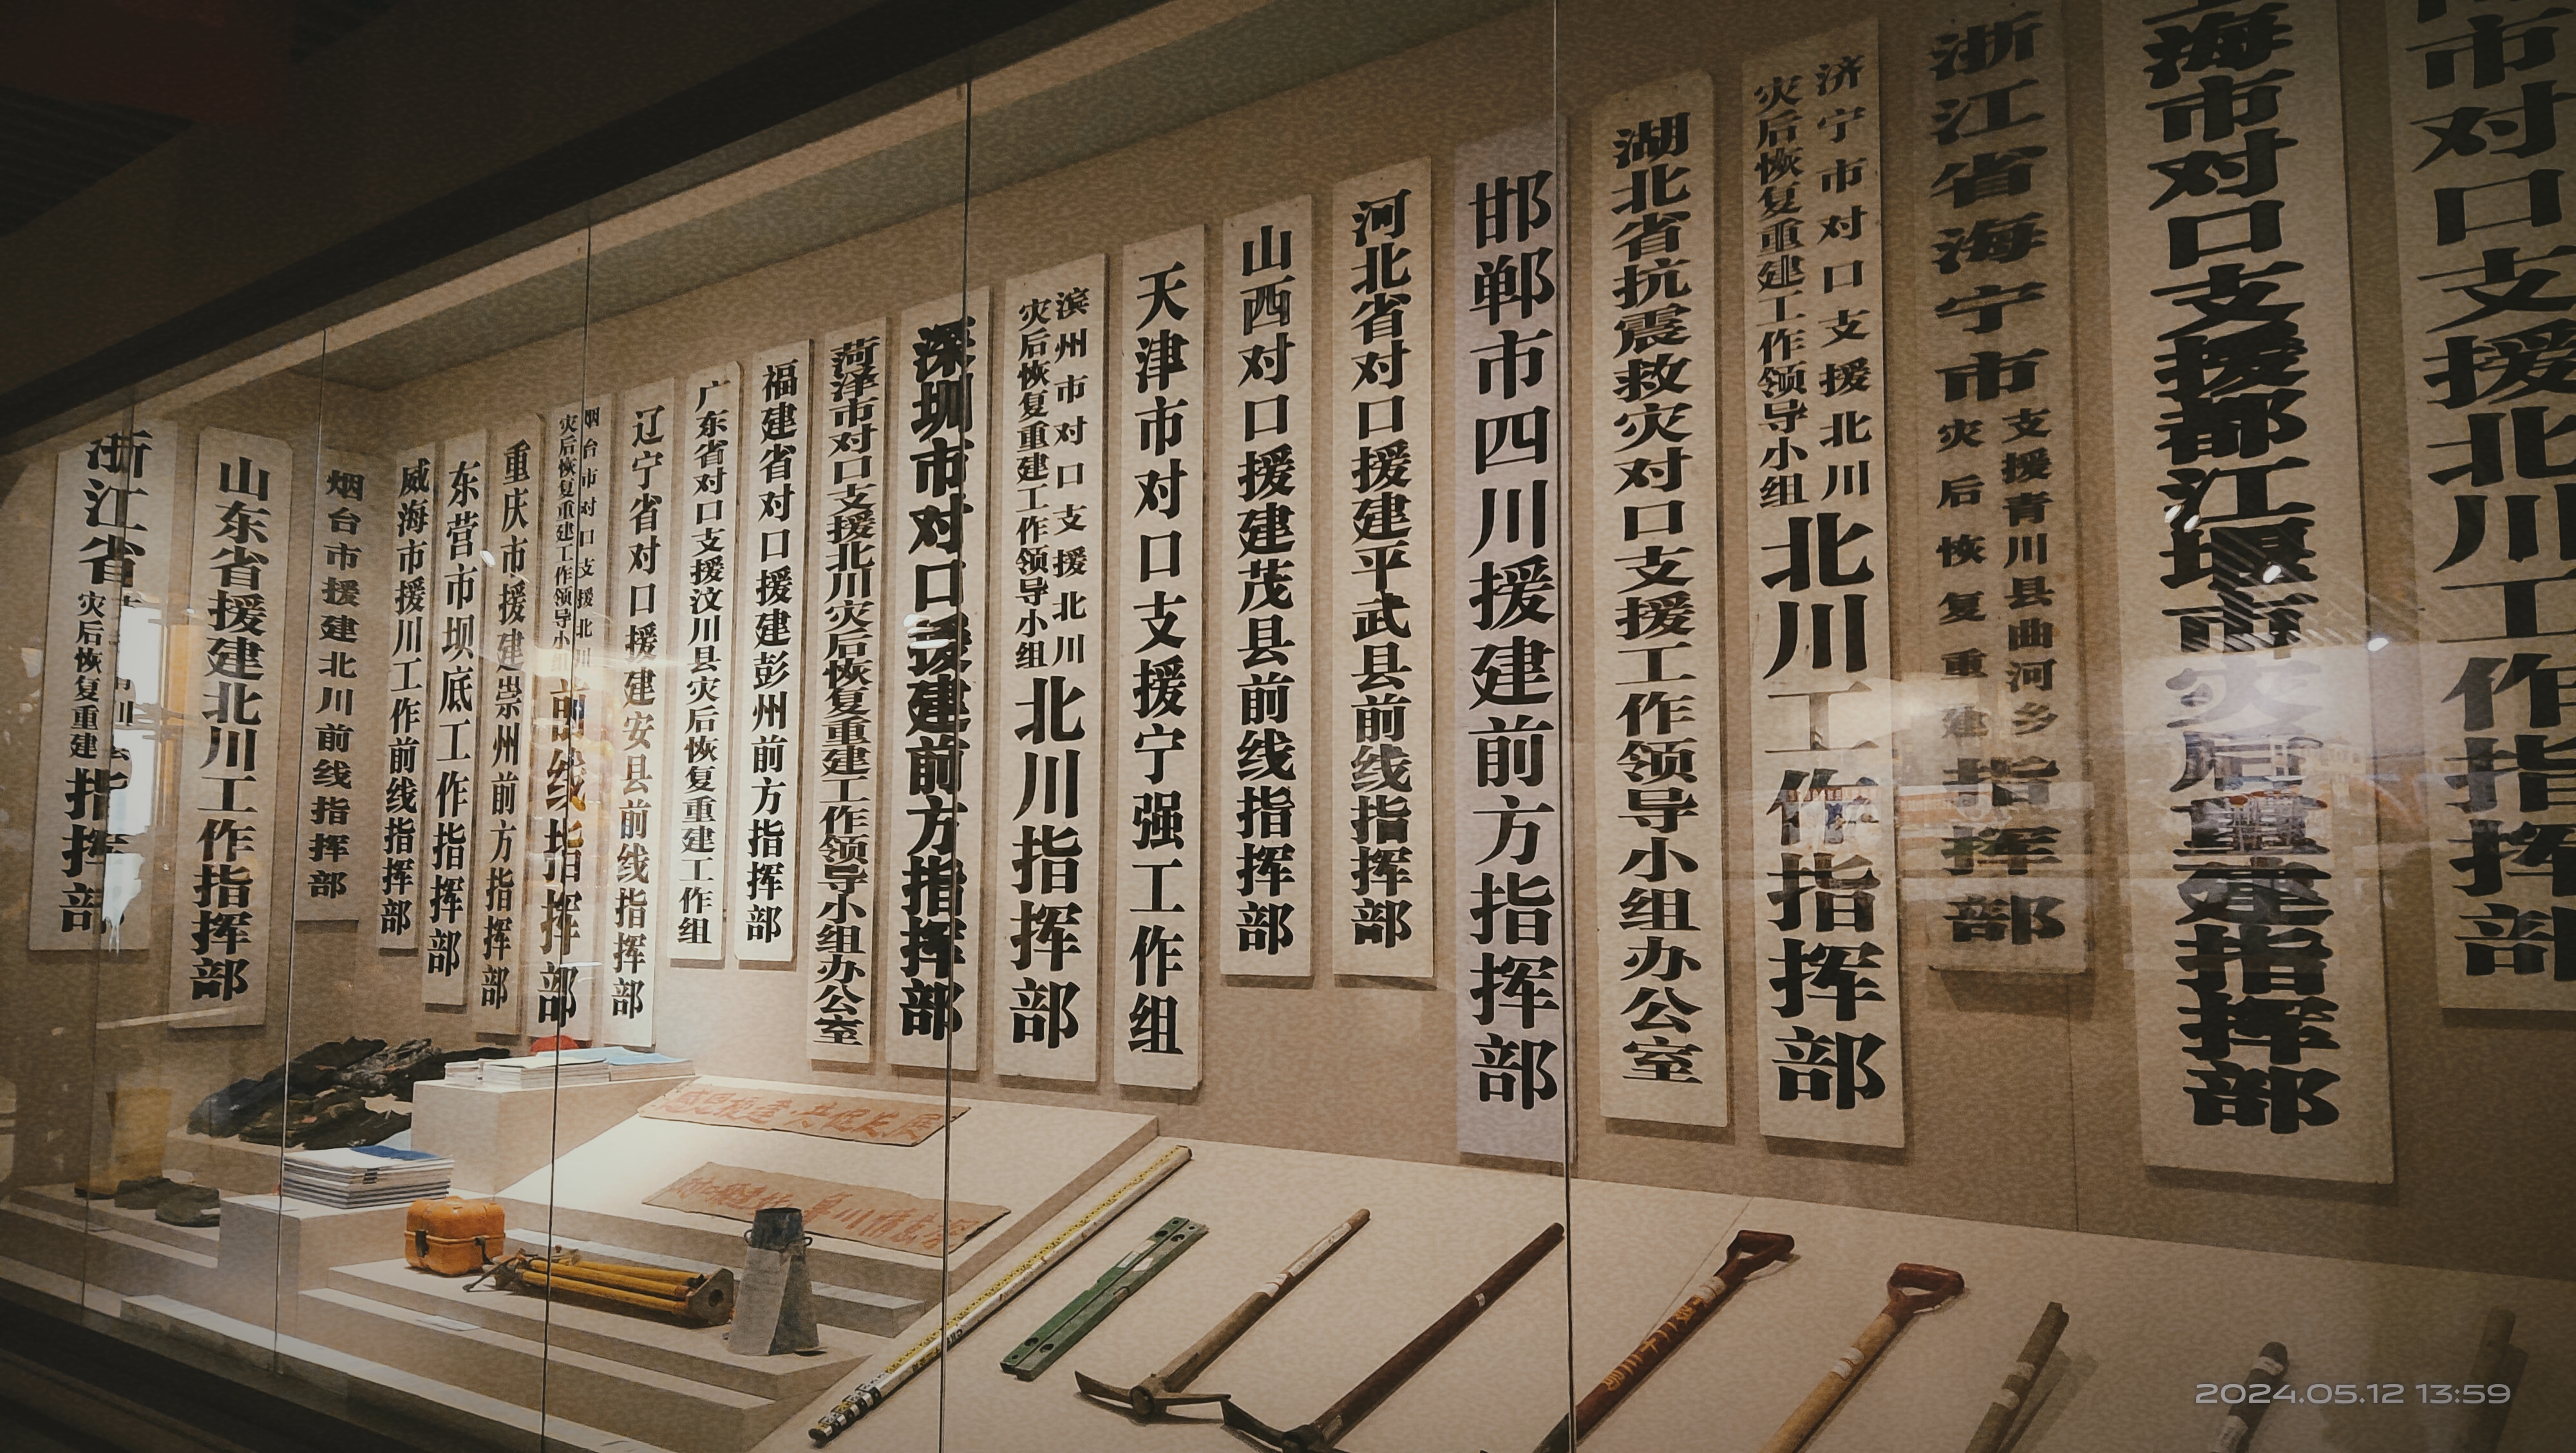 浙江省
灾后恢复重建
指挥部
山东省援建北川工作指挥部
烟台市援建北川前线指挥部
威海市援川工作前线指挥部
东营市坝底工作指挥部
重庆市援建崇州前方指挥部
烟台市对口支援北川
灾后恢复重建工作领导小组
前线指挥部
辽宁省对口援建安县前线指挥部
广东省对口支援汶川县灾后恢复重建工作组
福建省对口援建彭州前方指挥部
菏泽市对口支援北川灾后恢复重建工作领导小组办公室
深圳市对口援建前方指挥部
滨州市对口支援北川
灾后恢复重建工作领导小组
北川指挥部
天津市对口支援宁强工作组
山西对口援建茂县前线指挥部
河北省对口援建平武县前线指挥部
邯郸市四川援建前方指挥部
湖北省抗震救灾对口支援工作领导小组办公室
济宁市对口支援北川
灾后恢复重建工作领导小组
北川工作指挥部
浙江省海宁市
支援青川县曲河乡
灾后恢复重建
指挥部
海市对口支援都江堰市灾后重建指挥部
市对口支援北川工作指挥部
2024.05.12 13:59